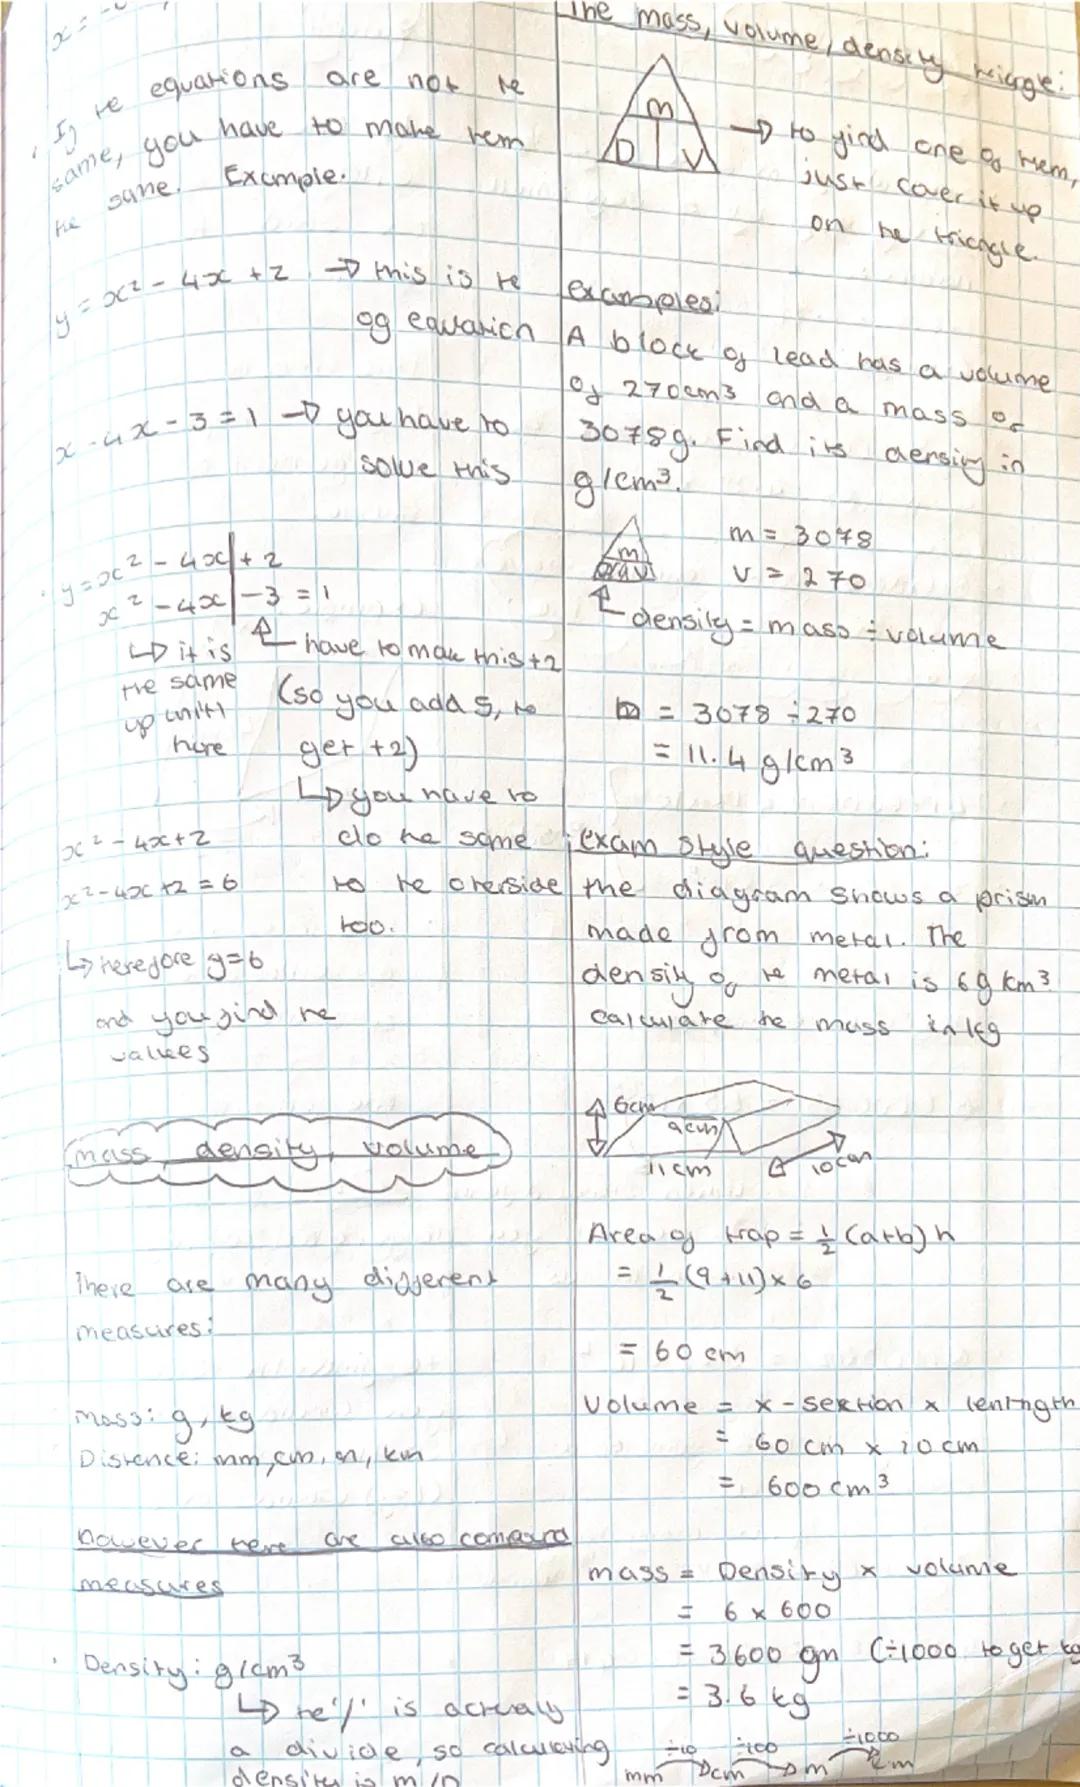 x =
. If the equations are not the
same, you have to make them
the same. Example.
y = x² - 4x + 2 → this is the
og equation
x - 4x - 3 = 1 → you have to
solve this
. y = x² - 4x | + 2
x² - 4x | - 3 = 1
↳ it is
the same
up until
here
have to make this +2
(so you add 5, to
get +2)
↳ you have to
do the same
to the otherside
too.
x² - 4x + 2
x² - 4x + 2 = 6
↳ therefore y=6
and you find the
values
mass, density, volume
There are many different
measures:
mass: g, kg
Distance: mm, cm, m, km
however there are also
measures
. Density: g/cm³
↳ the '/' is actually
a divide, so calculating
density is m/
The mass, volume, density triangle:
m
D V
→ to find one of them,
just cover it up
on the triangle.
examples:
A block of lead has a volume
of 270cm³ and a mass of
3078g. Find its density in
g/cm³.
m
m = 3078
v = 270
density = mass ÷ volume
= 3078 ÷ 270
= 11.4 g/cm³
exam style question:
the diagram shows a prism
made from metal. The
density of the metal is 6g/cm³.
calculate the mass in kg
6cm
9cm
11cm
10cm
Area of trap = ½ (a+b) h
= ½ (9+11) × 6
= 60 cm
Volume = x-section × lentngth
= 60 cm × 10 cm
= 600 cm³
mass = Density × volume
= 6 × 600
= 3600 gm (÷1000 to get kg
= 3.6 kg
÷10 ÷100 ÷1000
mm → cm → m → km